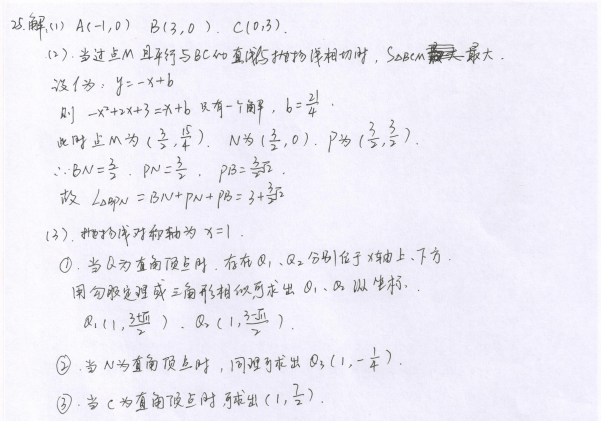 25.解:(1) A(-1,0) B(3,0). C(0,3).
(2). 当过点M且平行与BC的直线与抛物线相切时, S△BCM 最大.
设作为: y=-x+b
则 -x²+2x+3=-x+b 只有一个解, b=21/4.
此时点M为(3/2,15/4). N为(3/2,0). P为(3/2,3/2).
∴BN=3/2. PN=3/2. PB=3/2√2.
故 L△BPN=BN+PN+PB=3+3/2√2
(3). 抛物线对称轴为x=1.
①. 当Q为直角顶点时. 存在Q₁、Q₂分别位于x轴上、下方.
用勾股定理或三角形相似可求出Q₁、Q₂ 坐标.
Q₁(1,3+√11/2). Q₂(1,3-√11/2).
②. 当N为直角顶点时, 同理可求出Q₃(1,-1/4).
③. 当C为直角顶点时可求出(1,7/2).